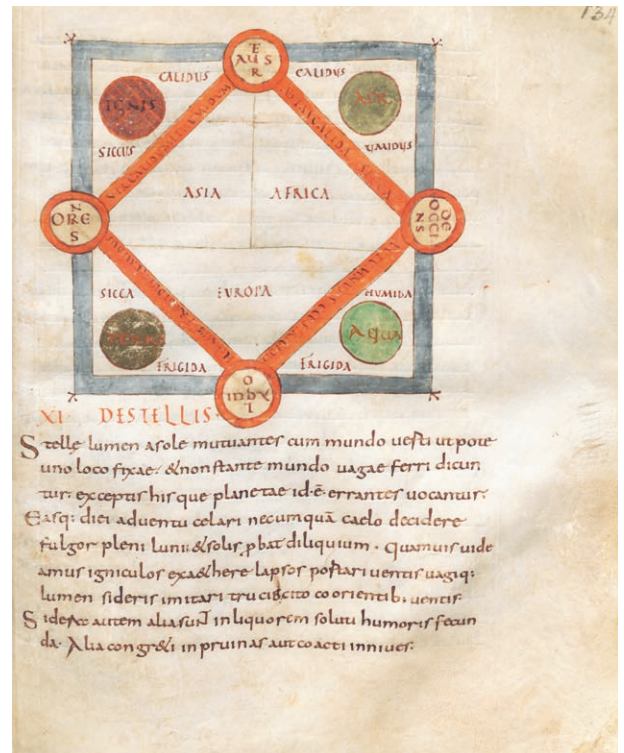 134
AUSER
CALIDUS CALIDUS
IGNIS AER
SICCUS UMIDUS
ASIA AFRICA
ORENS OCCIDENS
SICCA EUROPA HUMIDA
AQUA
FRIGIDA FRIGIDA
XI· DESTELLIS·
Stelle lumen asole mutuantes cum mundo uerti utpote
uno loco fixae· & non stante mundo uagae ferri dicun
tur· exceptis his que planetae id·ē· errantes uocantur·
Easq; diei aduentu celari necumquā caelo decidere
fulgor pleni lunii & solis pbat diliquium· Quamuis uide
amus igniculos exaethere lapsos portari uentis uagiq;
lumen sideris imitari coorientib; uentis·
autem alia in liquorem soluti humoris fecun
da· Alia in pruinas aut coacti inniues·